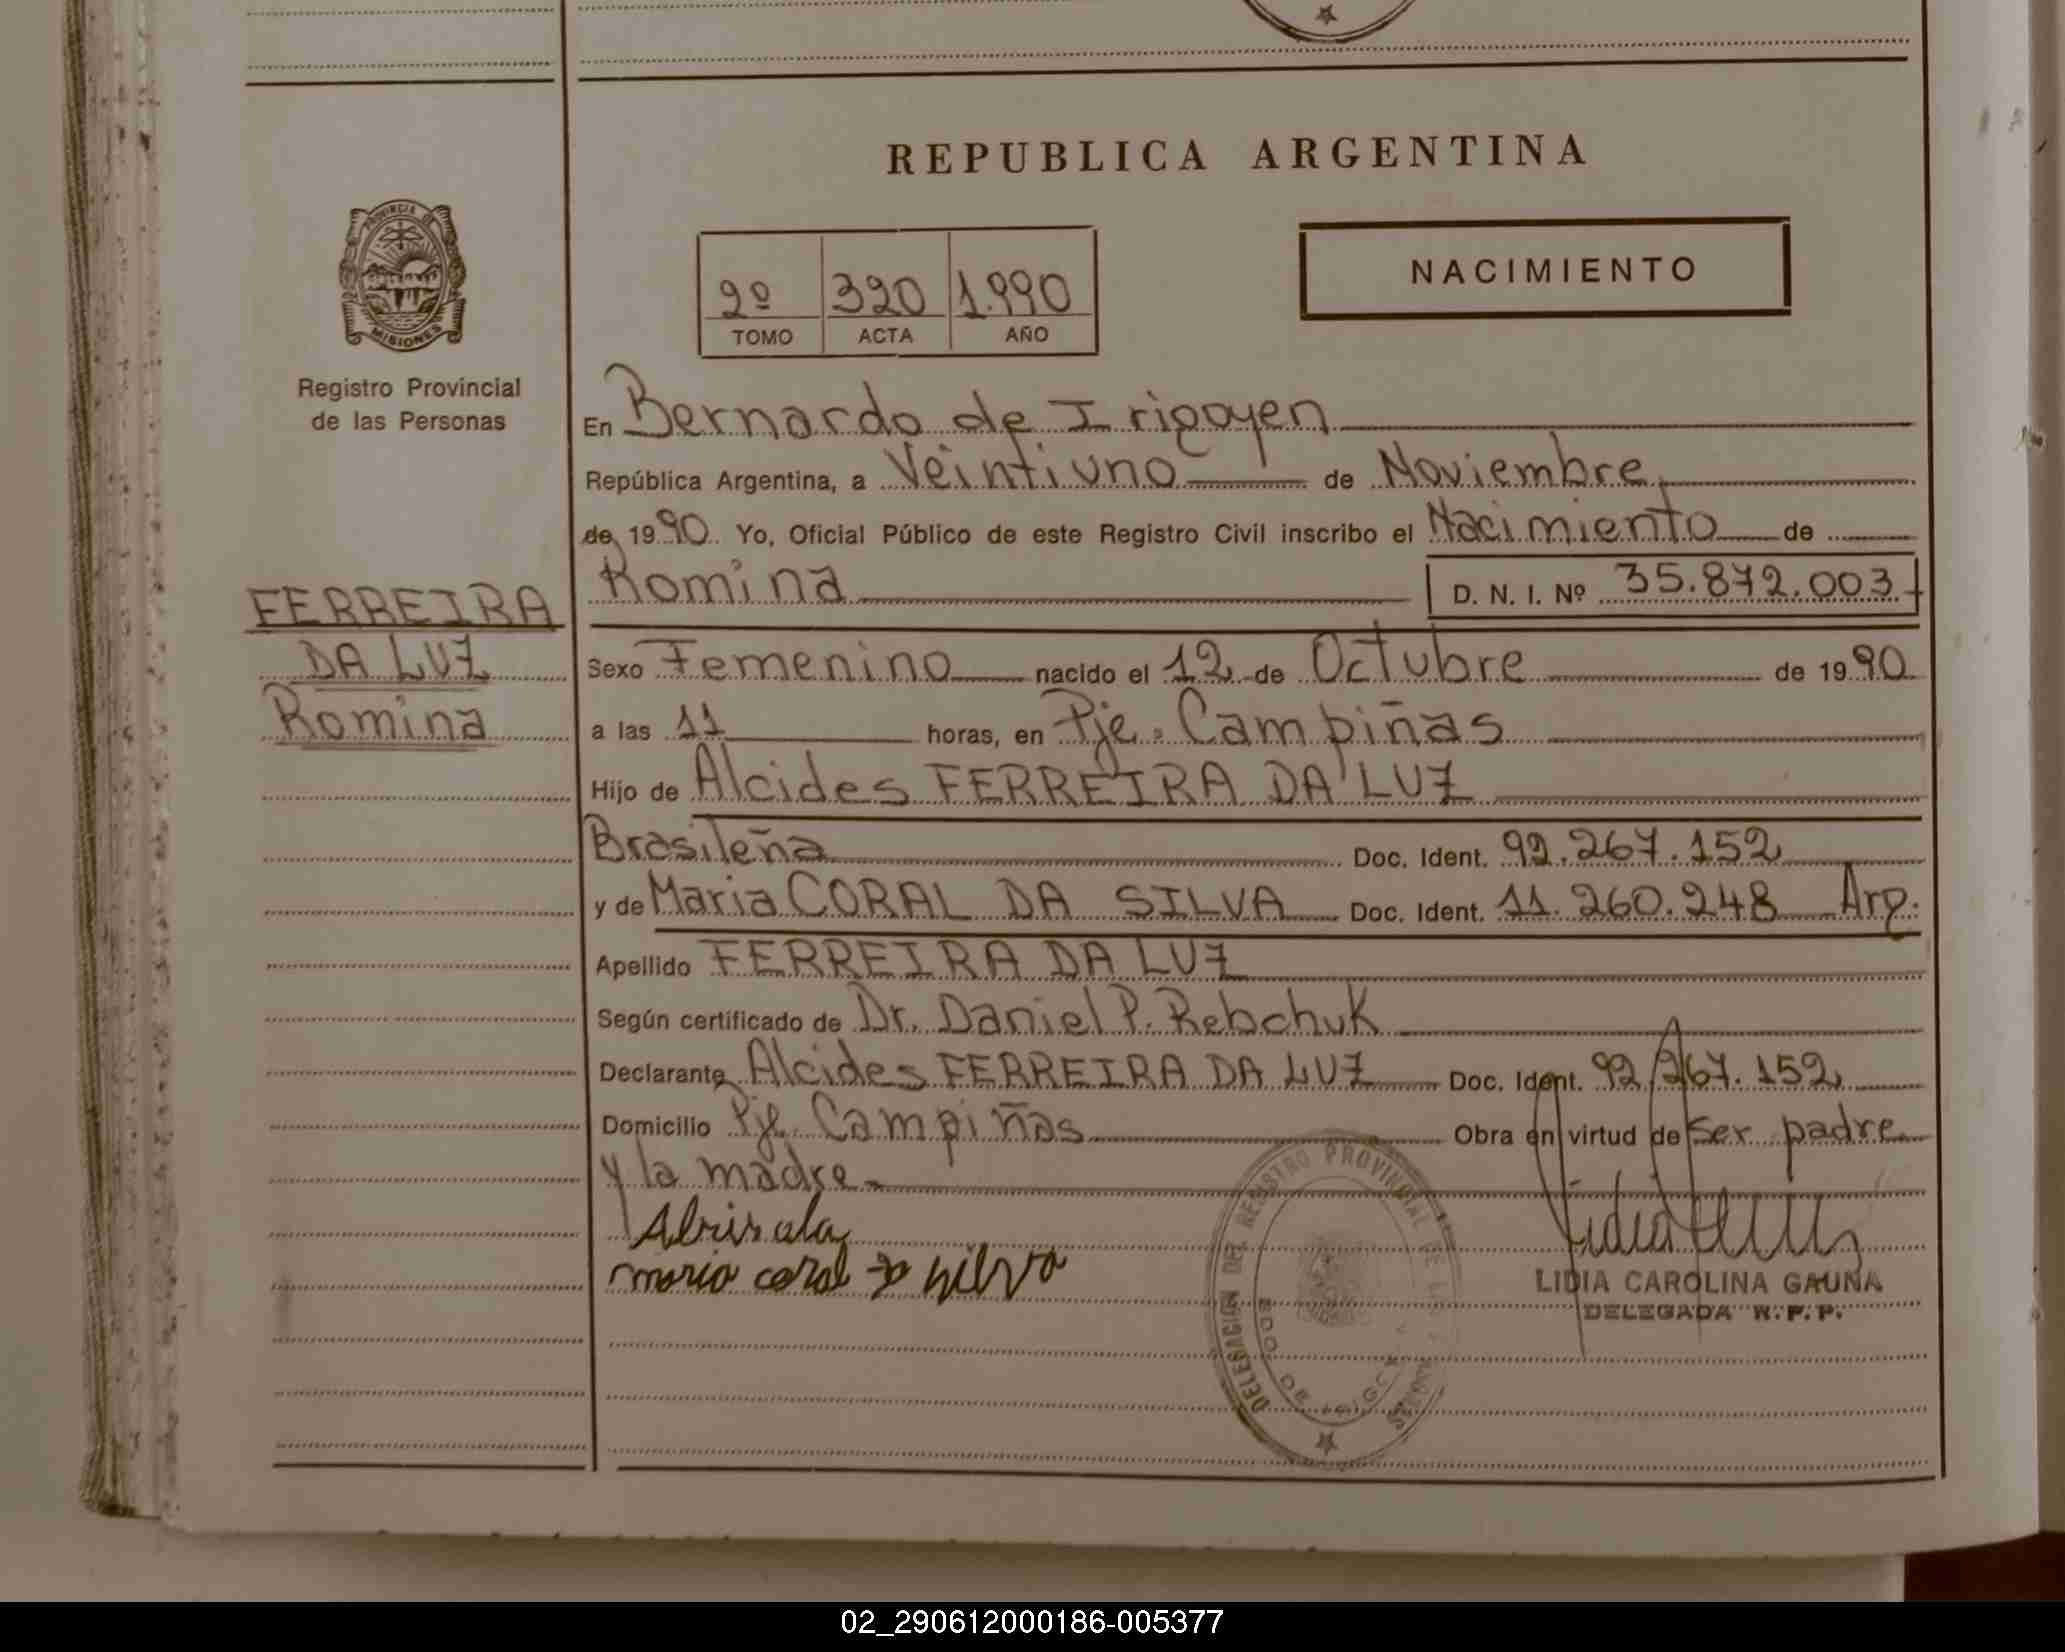 REPUBLICA ARGENTINA
PROVINCIA DE
MISIONES
Registro Provincial
de las Personas
2º 320 1.990
TOMO ACTA AÑO
NACIMIENTO
En Bernardo de Irigoyen
República Argentina, a Veintiuno de Noviembre
de 1990 Yo, Oficial Público de este Registro Civil inscribo el Nacimiento de
Romina D. N. I. Nº 35.872.003
FERREIRA
DA LUZ
Romina
Sexo Femenino nacido el 12 de Octubre de 1990
a las 11 horas, en Pje. Campiñas
Hijo de Alcides FERREIRA DA LUZ
Brasileña Doc. Ident. 92.267.152
y de Maria CORAL DA SILVA Doc. Ident. 11.260.248 Arg.
Apellido FERREIRA DA LUZ
Según certificado de Dr. Daniel P. Rebchuk
Declarante Alcides FERREIRA DA LUZ Doc. Ident. 92.267.152
Domicilio Pje. Campiñas Obra en virtud de ser padre
y la madre
maria coral da silva
DELEGACION DEL REGISTRO PROVINCIAL DE LAS
BDO. DE IRIGOYEN
MISIONES
LIDIA CAROLINA GAUNA
DELEGADA R.P.P.
02_290612000186-005377